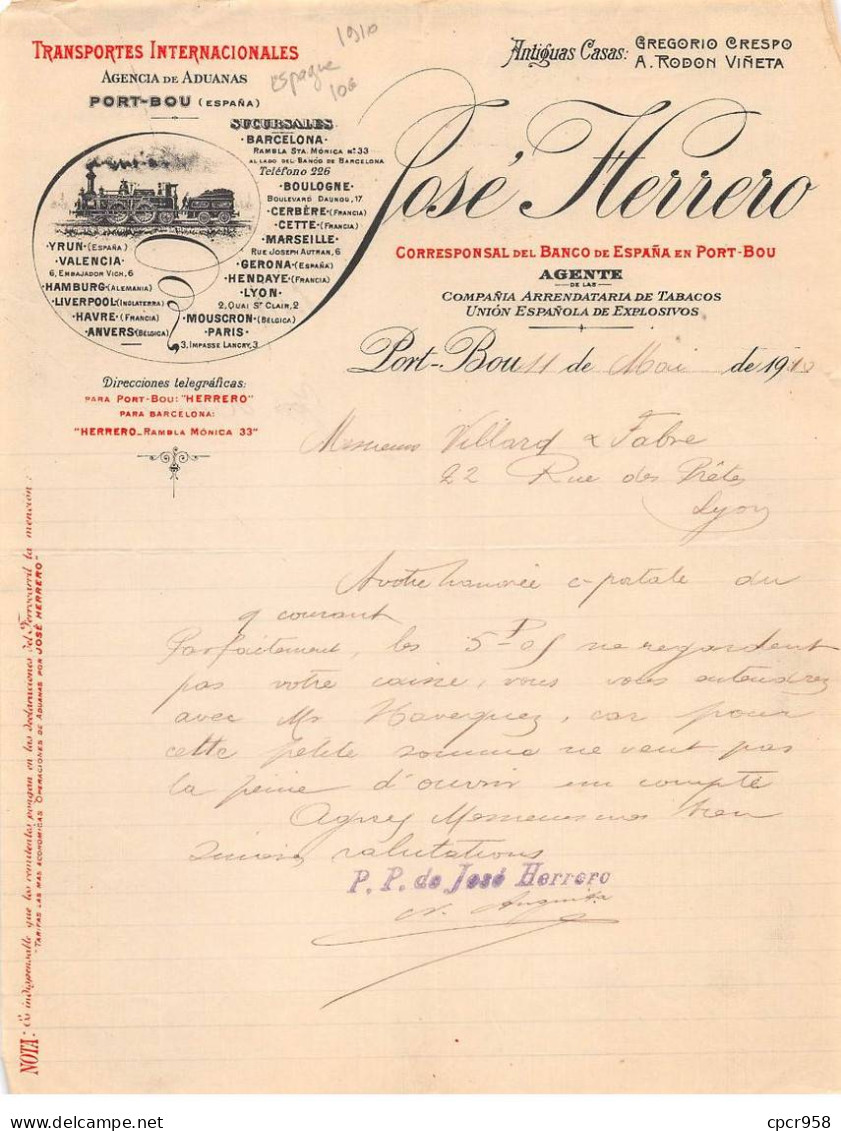 TRANSPORTES INTERNACIONALES
AGENCIA DE ADUANAS
PORT-BOU (ESPAÑA)
espagne 1910
106
Antiguas Casas: GREGORIO CRESPO
A. RODON VIÑETA
José Herrero
CORRESPONSAL DEL BANCO DE ESPAÑA EN PORT-BOU
AGENTE
DE LAS
COMPAÑIA ARRENDATARIA DE TABACOS
UNIÓN ESPAÑOLA DE EXPLOSIVOS
SUCURSALES
·BARCELONA·
RAMBLA STA. MÓNICA Nº 33
AL LADO DEL BANCO DE BARCELONA
Teléfono 226
·BOULOGNE·
BOULEVARD DAUNOU, 17
·CERBÈRE·(FRANCIA)
·CETTE·(FRANCIA)
·MARSEILLE·
RUE JOSEPH AUTRAN, 6
·GERONA·(ESPAÑA)
·HENDAYE·(FRANCIA)
·LYON·
2, QUAI ST CLAIR, 2
·MOUSCRON·(BÉLGICA)
·PARIS·
3, IMPASSE LANCRY, 3
·YRUN·(ESPAÑA)
·VALENCIA·
6, EMBAJADOR VICH, 6
·HAMBURG·(ALEMANIA)
·LIVERPOOL·(INGLATERRA)
·HAVRE·(FRANCIA)
·ANVERS·(BÉLGICA)
Direcciones telegráficas:
PARA PORT-BOU: "HERRERO"
PARA BARCELONA:
"HERRERO-RAMBLA MÓNICA 33"
Port-Bou 11 de Mai de 1910
Messieurs Villard & Fabre
22 Rue des Prêtes
Lyon
A votre honorée c-postale du
9 courant
Parfaitement, les 5 ne regardent
pas votre caisse, vous vous entendrez
avec Mr, car pour
cette petite somme ne vaut pas
la peine d'ouvrir un compte
Agréez Messieurs nos bien
sincères salutations
P. P. de José Herrero
NOTA: Es indispensable que los remitentes pongan en las declaraciones del Ferrocarril la mención:
"TARIFAS LAS MAS ECONOMICAS OPERACIONES DE ADUANAS POR JOSÉ HERRERO"
cpcr958